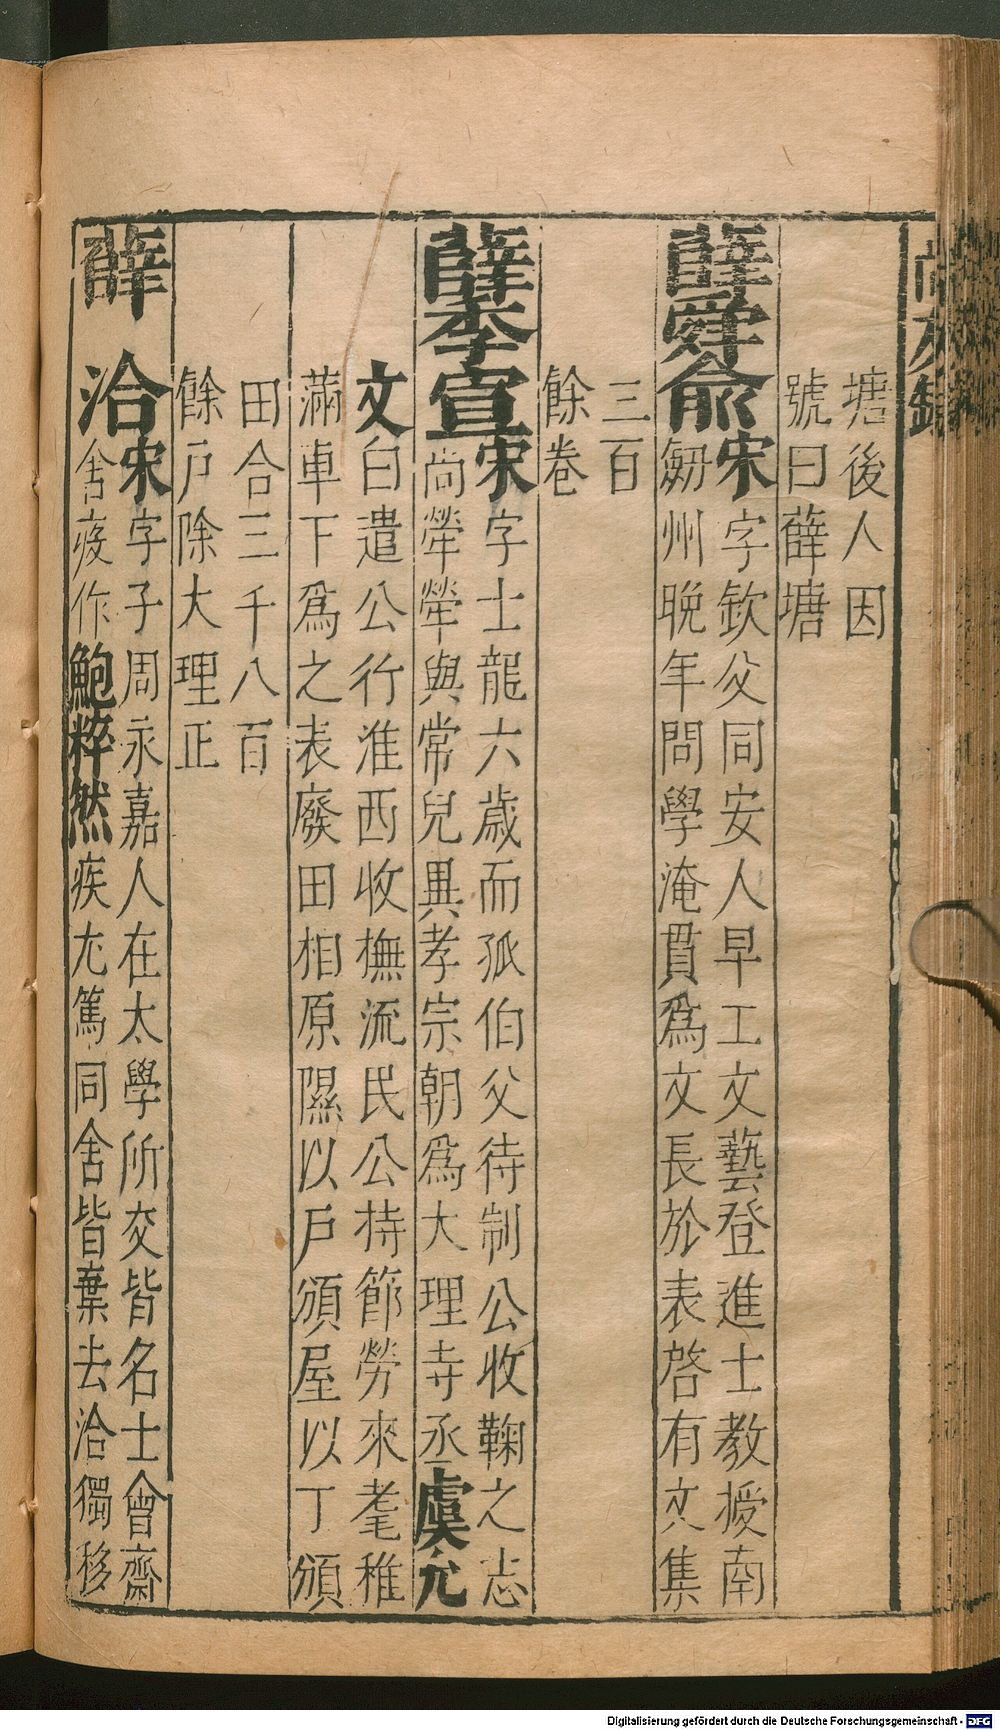 塘後人因
號曰薛塘
薛舜俞宋字欽父同安人早工文藝登進士教授南
劒州晚年問學淹貫爲文長於表啓有文集
三百
餘卷
薛季宣宋字士龍六歲而孤伯父待制公收鞠之志
尚犖犖與常兒異孝宗朝爲大理寺丞虞允
文白遣公行淮西收撫流民公持節勞來耄稚
滿車下爲之表廢田相原隰以戶頒屋以丁頒
田合三千八百
餘戶除大理正
薛洽宋字子周永嘉人在太學所交皆名士會齋
舍疫作鮑粹然疾尤篤同舍皆棄去洽獨移
Digitalisierung gefördert durch die Deutsche Forschungsgemeinschaft - DFG